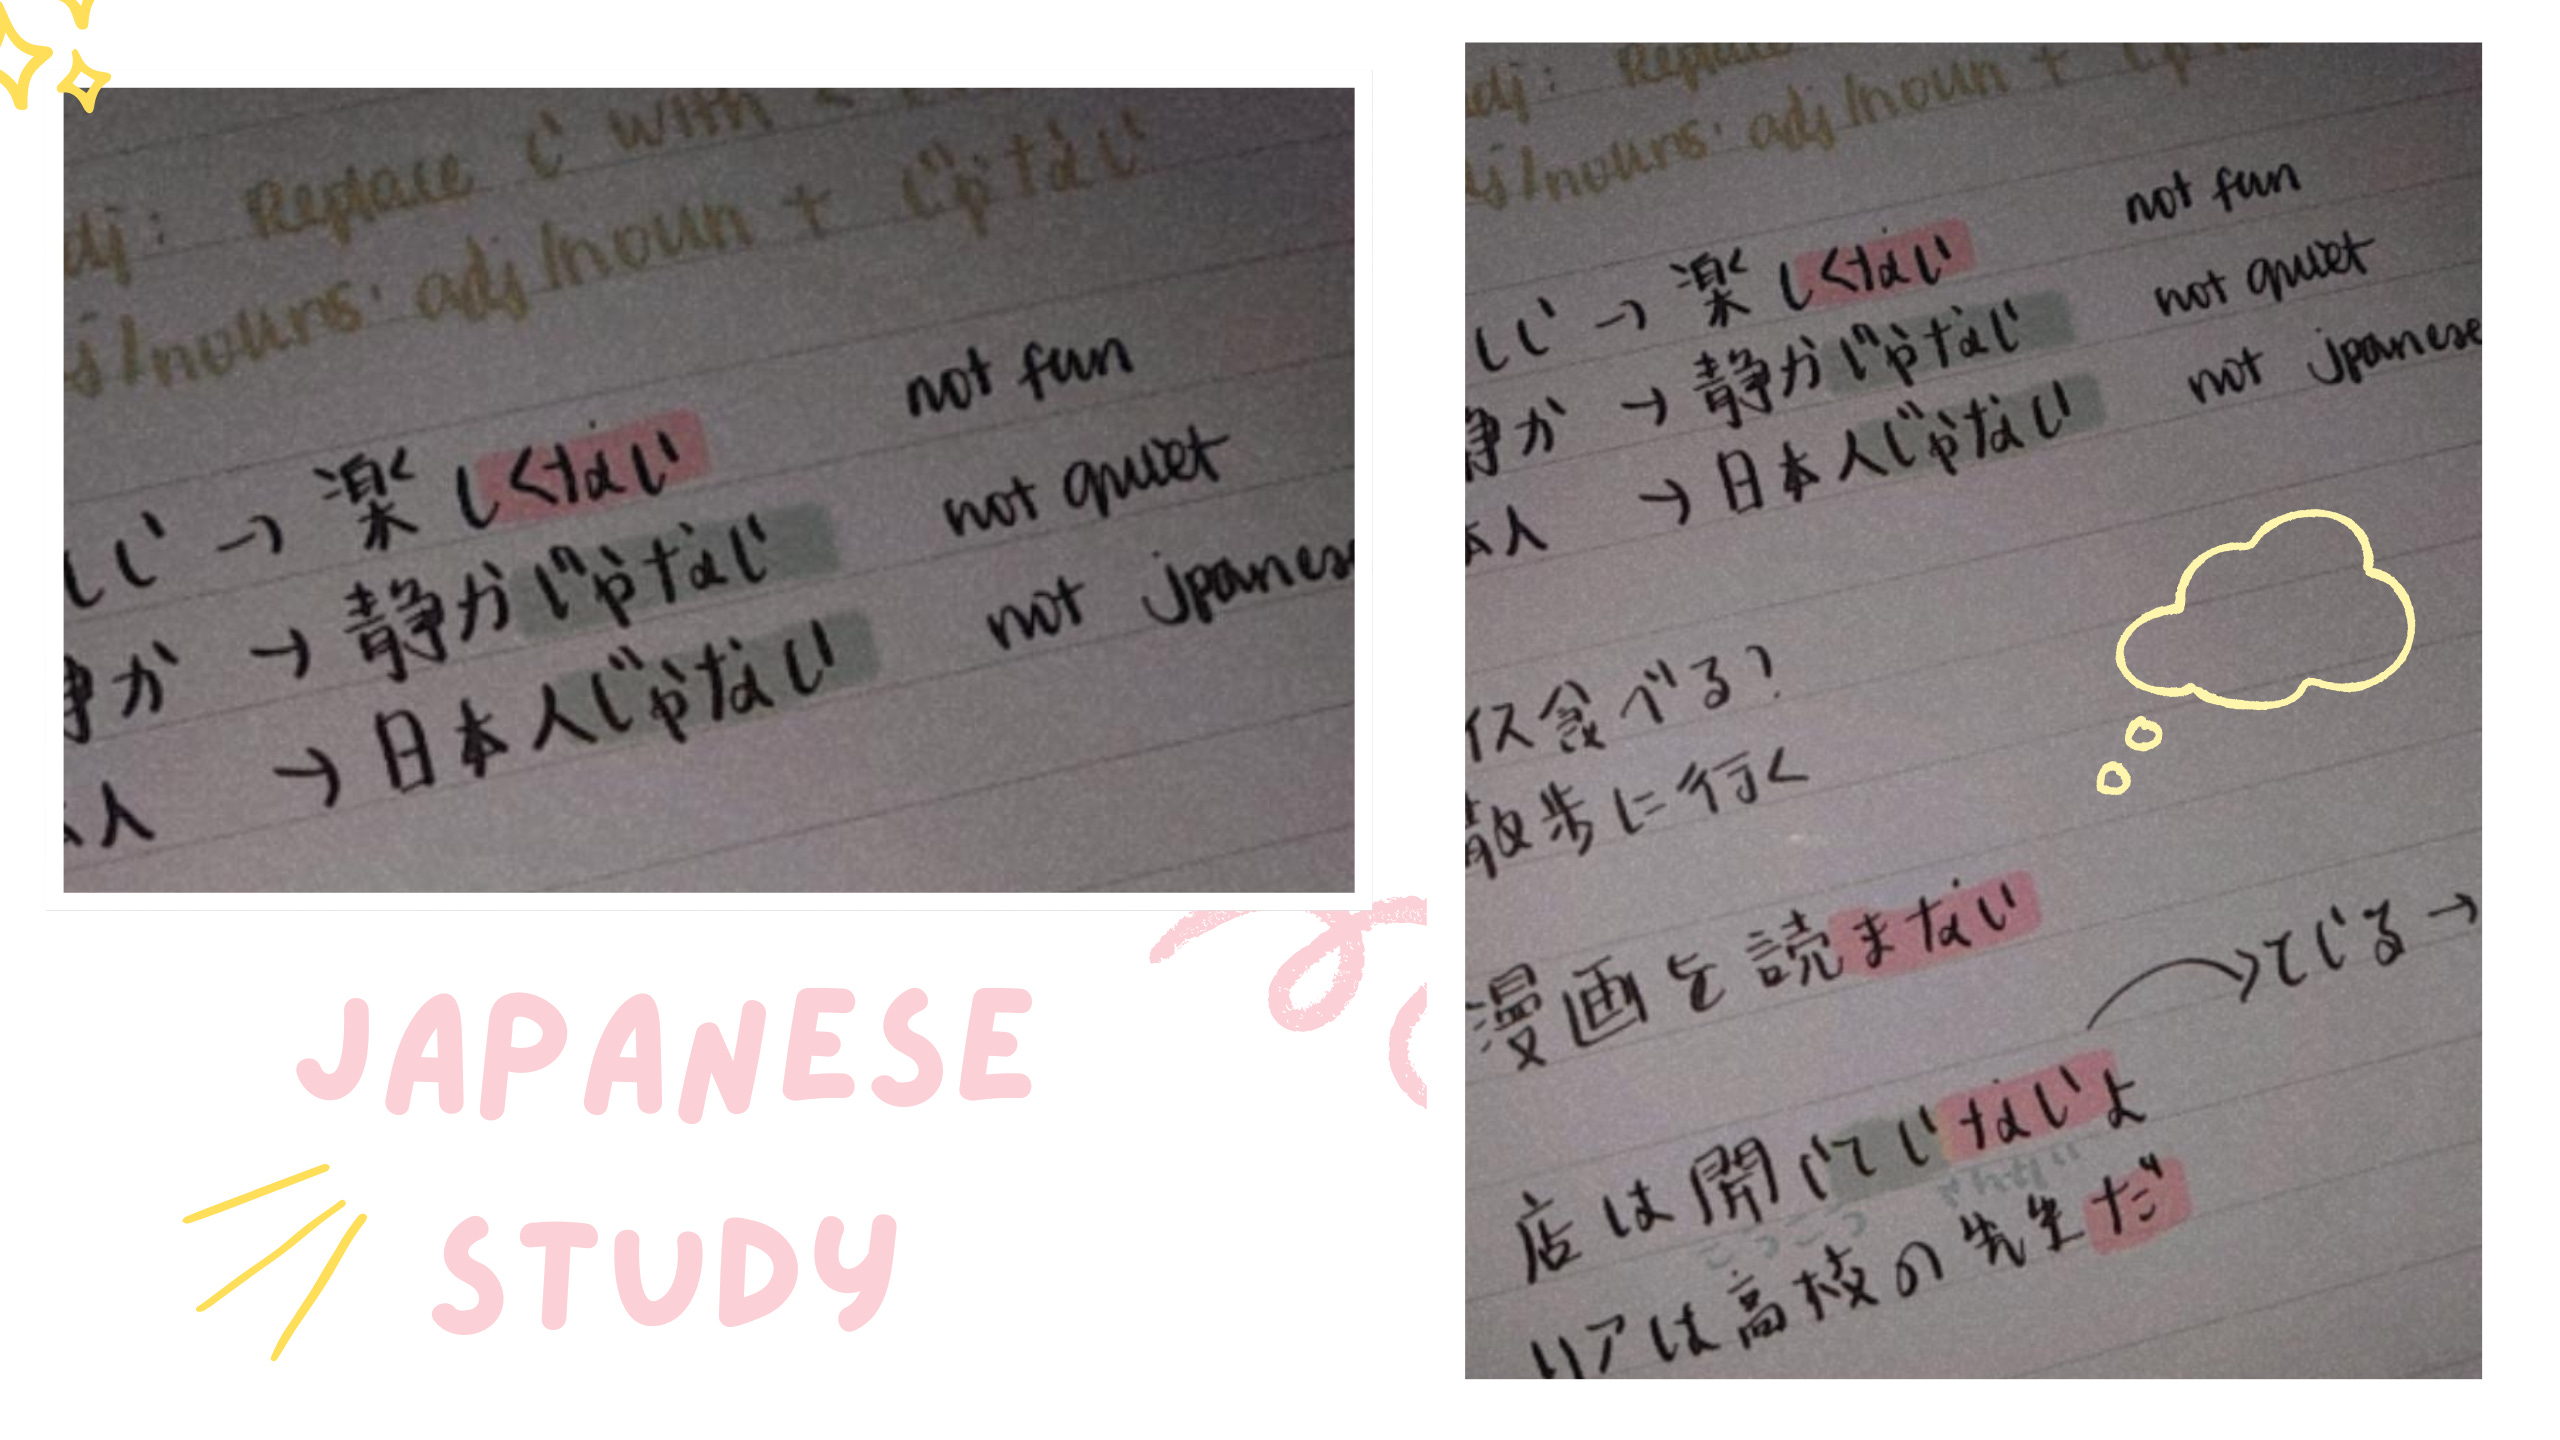 Replace い with く
adj/noun + じゃない
しい → 楽しくない not fun
静か → 静かじゃない not quiet
人 → 日本人じゃない not jpanese
JAPANESE
STUDY
adj: Replace
/nouns: adj/noun +
しい → 楽しくない not fun
静か → 静かじゃない not quiet
人 → 日本人じゃない not jpanese
イス食べる?
散歩に行く
漫画を読まない
ている →
店は開いていないよ
リアは高校の先生だ